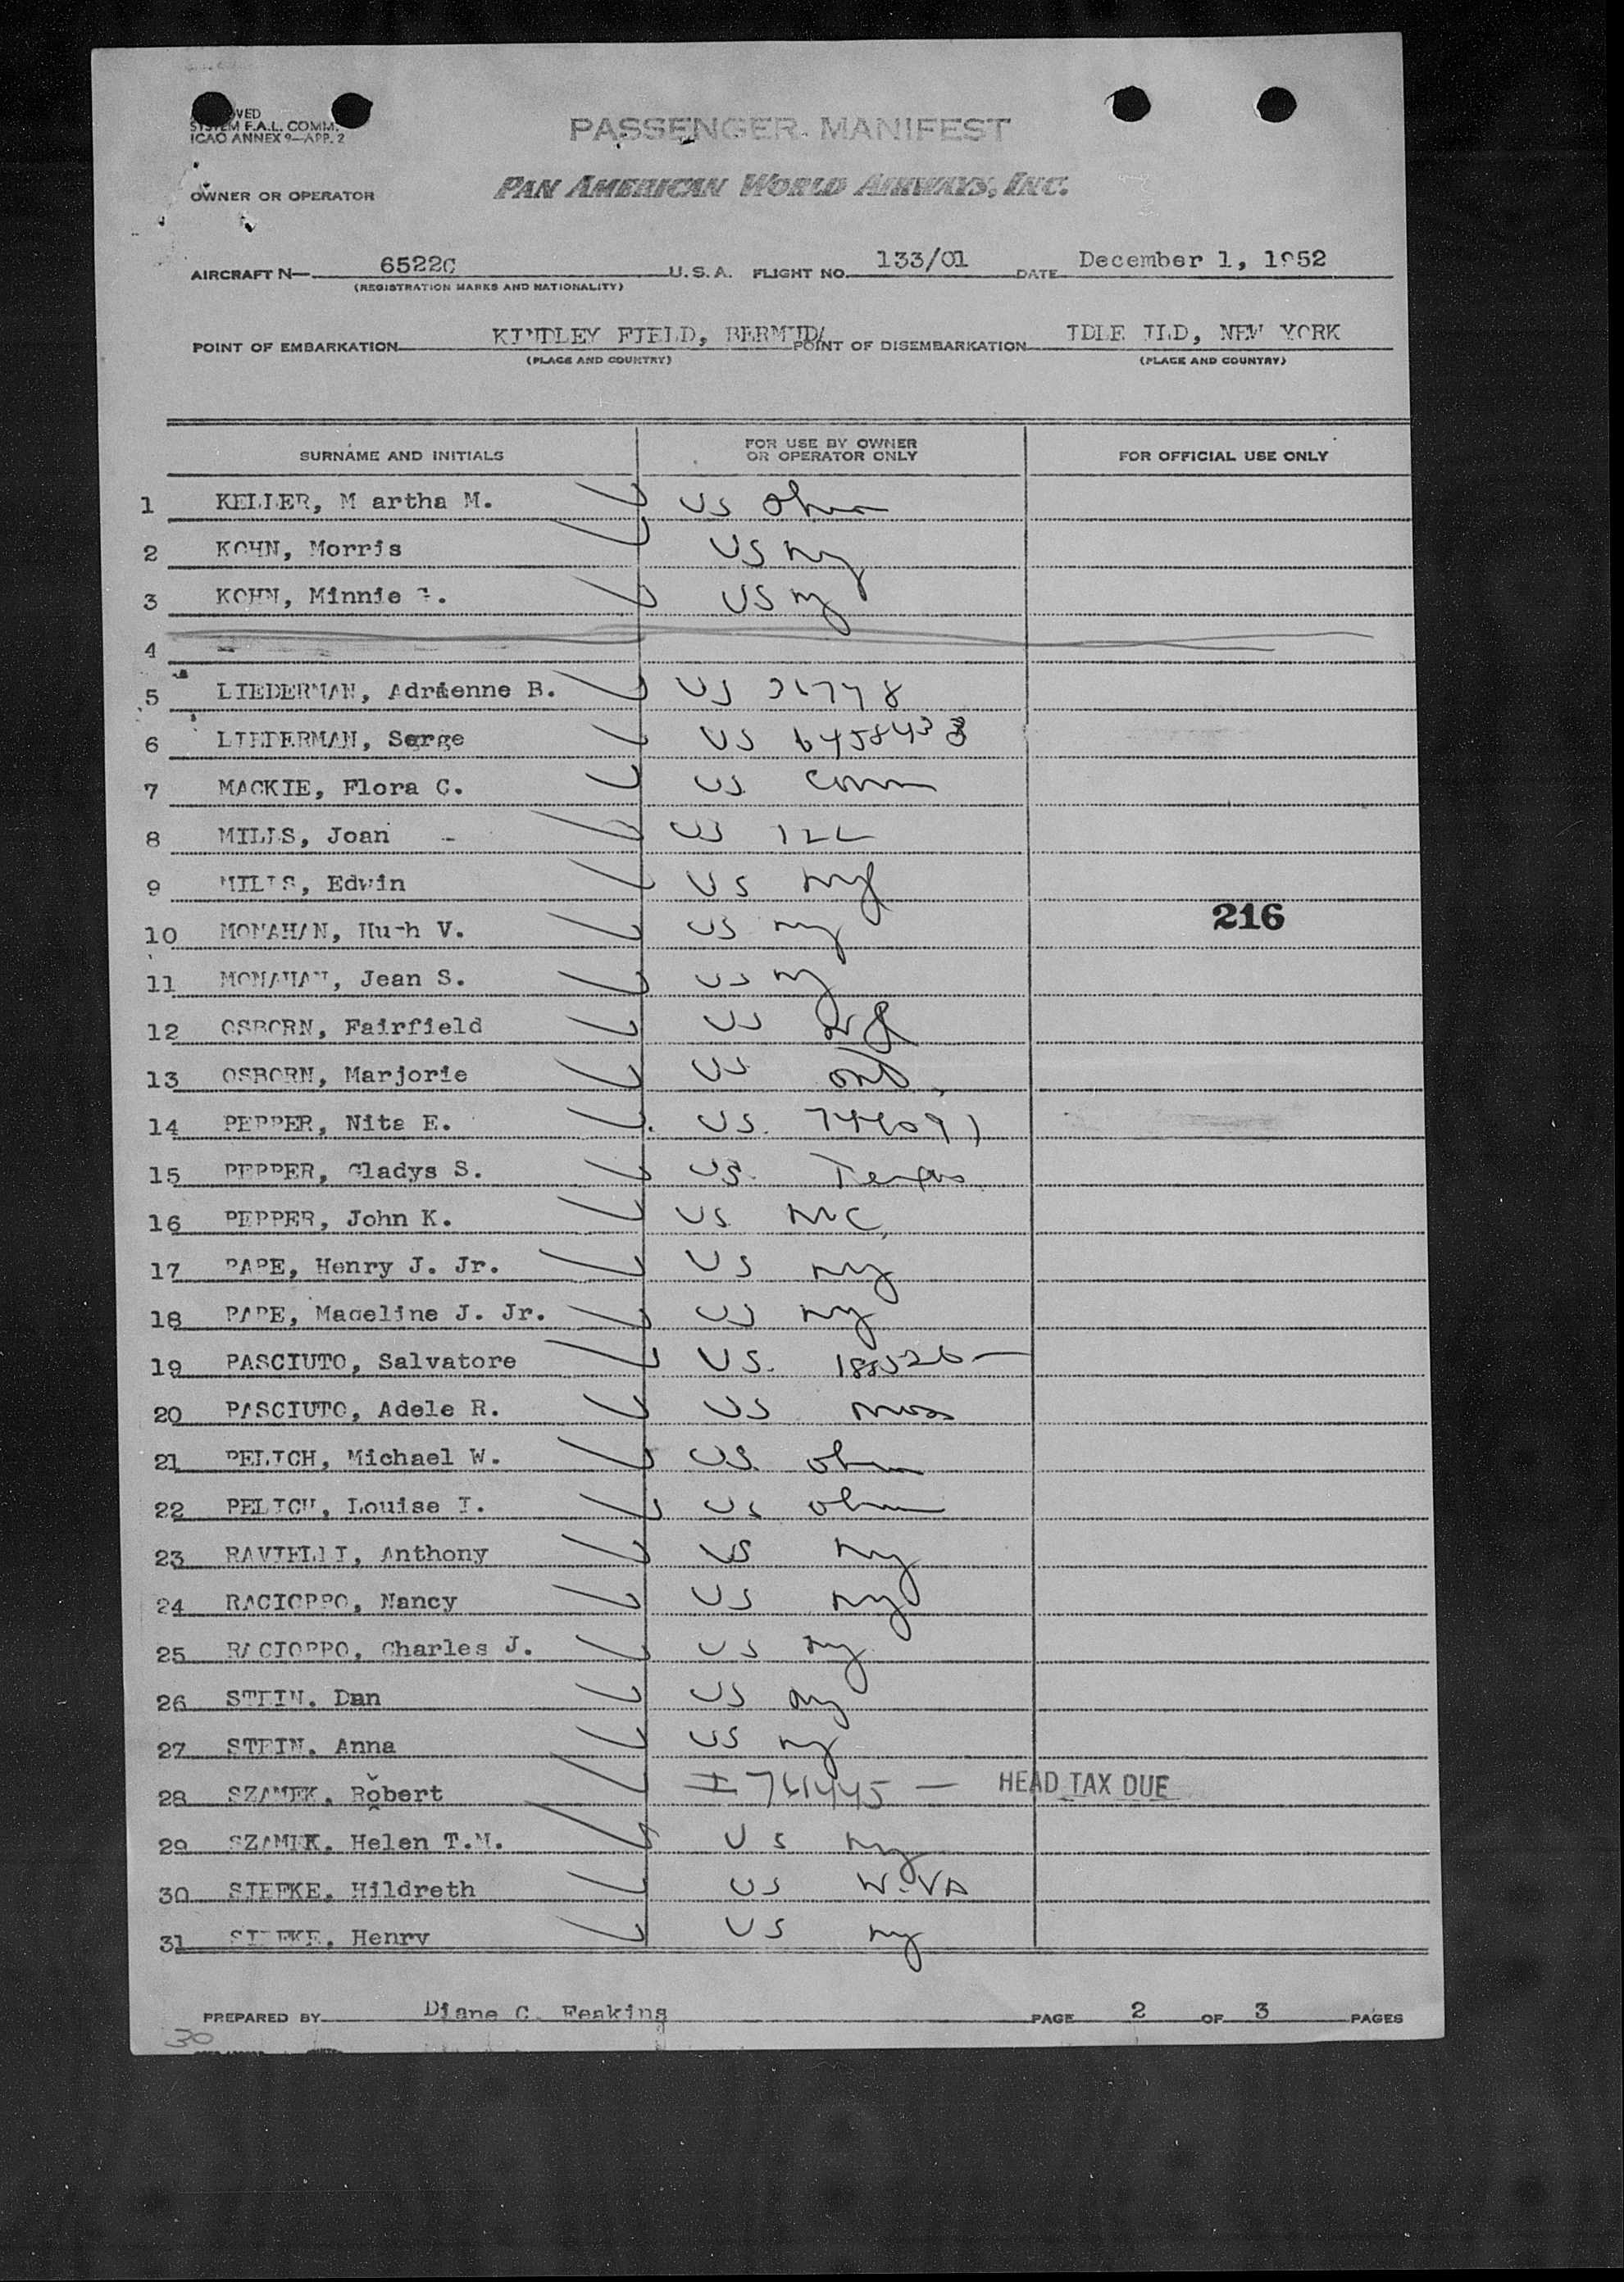 SYSTEM F.A.L. COMM.
ICAO ANNEX 9—APP. 2
PASSENGER MANIFEST
OWNER OR OPERATOR PAN AMERICAN WORLD AIRWAYS, INC.
AIRCRAFT N— 6522C U.S.A. FLIGHT NO. 133/01 DATE December 1, 1952
(REGISTRATION MARKS AND NATIONALITY)
POINT OF EMBARKATION KINDLEY FIELD, BERMUDA POINT OF DISEMBARKATION NEW YORK
(PLACE AND COUNTRY) (PLACE AND COUNTRY)
SURNAME AND INITIALS FOR USE BY OWNER OR OPERATOR ONLY FOR OFFICIAL USE ONLY
1 KELLER, M artha M. US Ohio
2 KOHN, Morris US ny
3 KOHN, Minnie US ny
4
5 LIEDERMAN, Adrienne B. US
6 LIEDERMAN, Serge US
7 MACKIE, Flora C. US Conn
8 MILLS, Joan US ILL
9 MILLS, Edwin US
10 MONAHAN, Hugh V. US ny 216
11 MONAHAN, Jean S. US ny
12 OSBORN, Fairfield US
13 OSBORN, Marjorie US
14 PEPPER, Nita E. US.
15 PEPPER, Gladys S. US. Texas
16 PEPPER, John K. US NC
17 PAPE, Henry J. Jr. US ny
18 PAPE, Madeline J. Jr. US ny
19 PASCIUTO, Salvatore US.
20 PASCIUTO, Adele R. US Mass
21 PELICH, Michael W. US. Ohio
22 PELICH, Louise I. US Ohio
23 RAVIELLI, Anthony US ny
24 RACIOPPO, Nancy US ny
25 RACIOPPO, Charles J. US ny
26 STEIN. Dan US ny
27 STEIN. Anna US ny
28 SZAMEK. Robert I 761445 — HEAD TAX DUE
29 SZAMEK. Helen T.M. US ny
30 SIEFKE. Hildreth US W.VA
31 SIEFKE. Henry US ny
PREPARED BY Diane C. Feakins PAGE 2 OF 3 PAGES
30